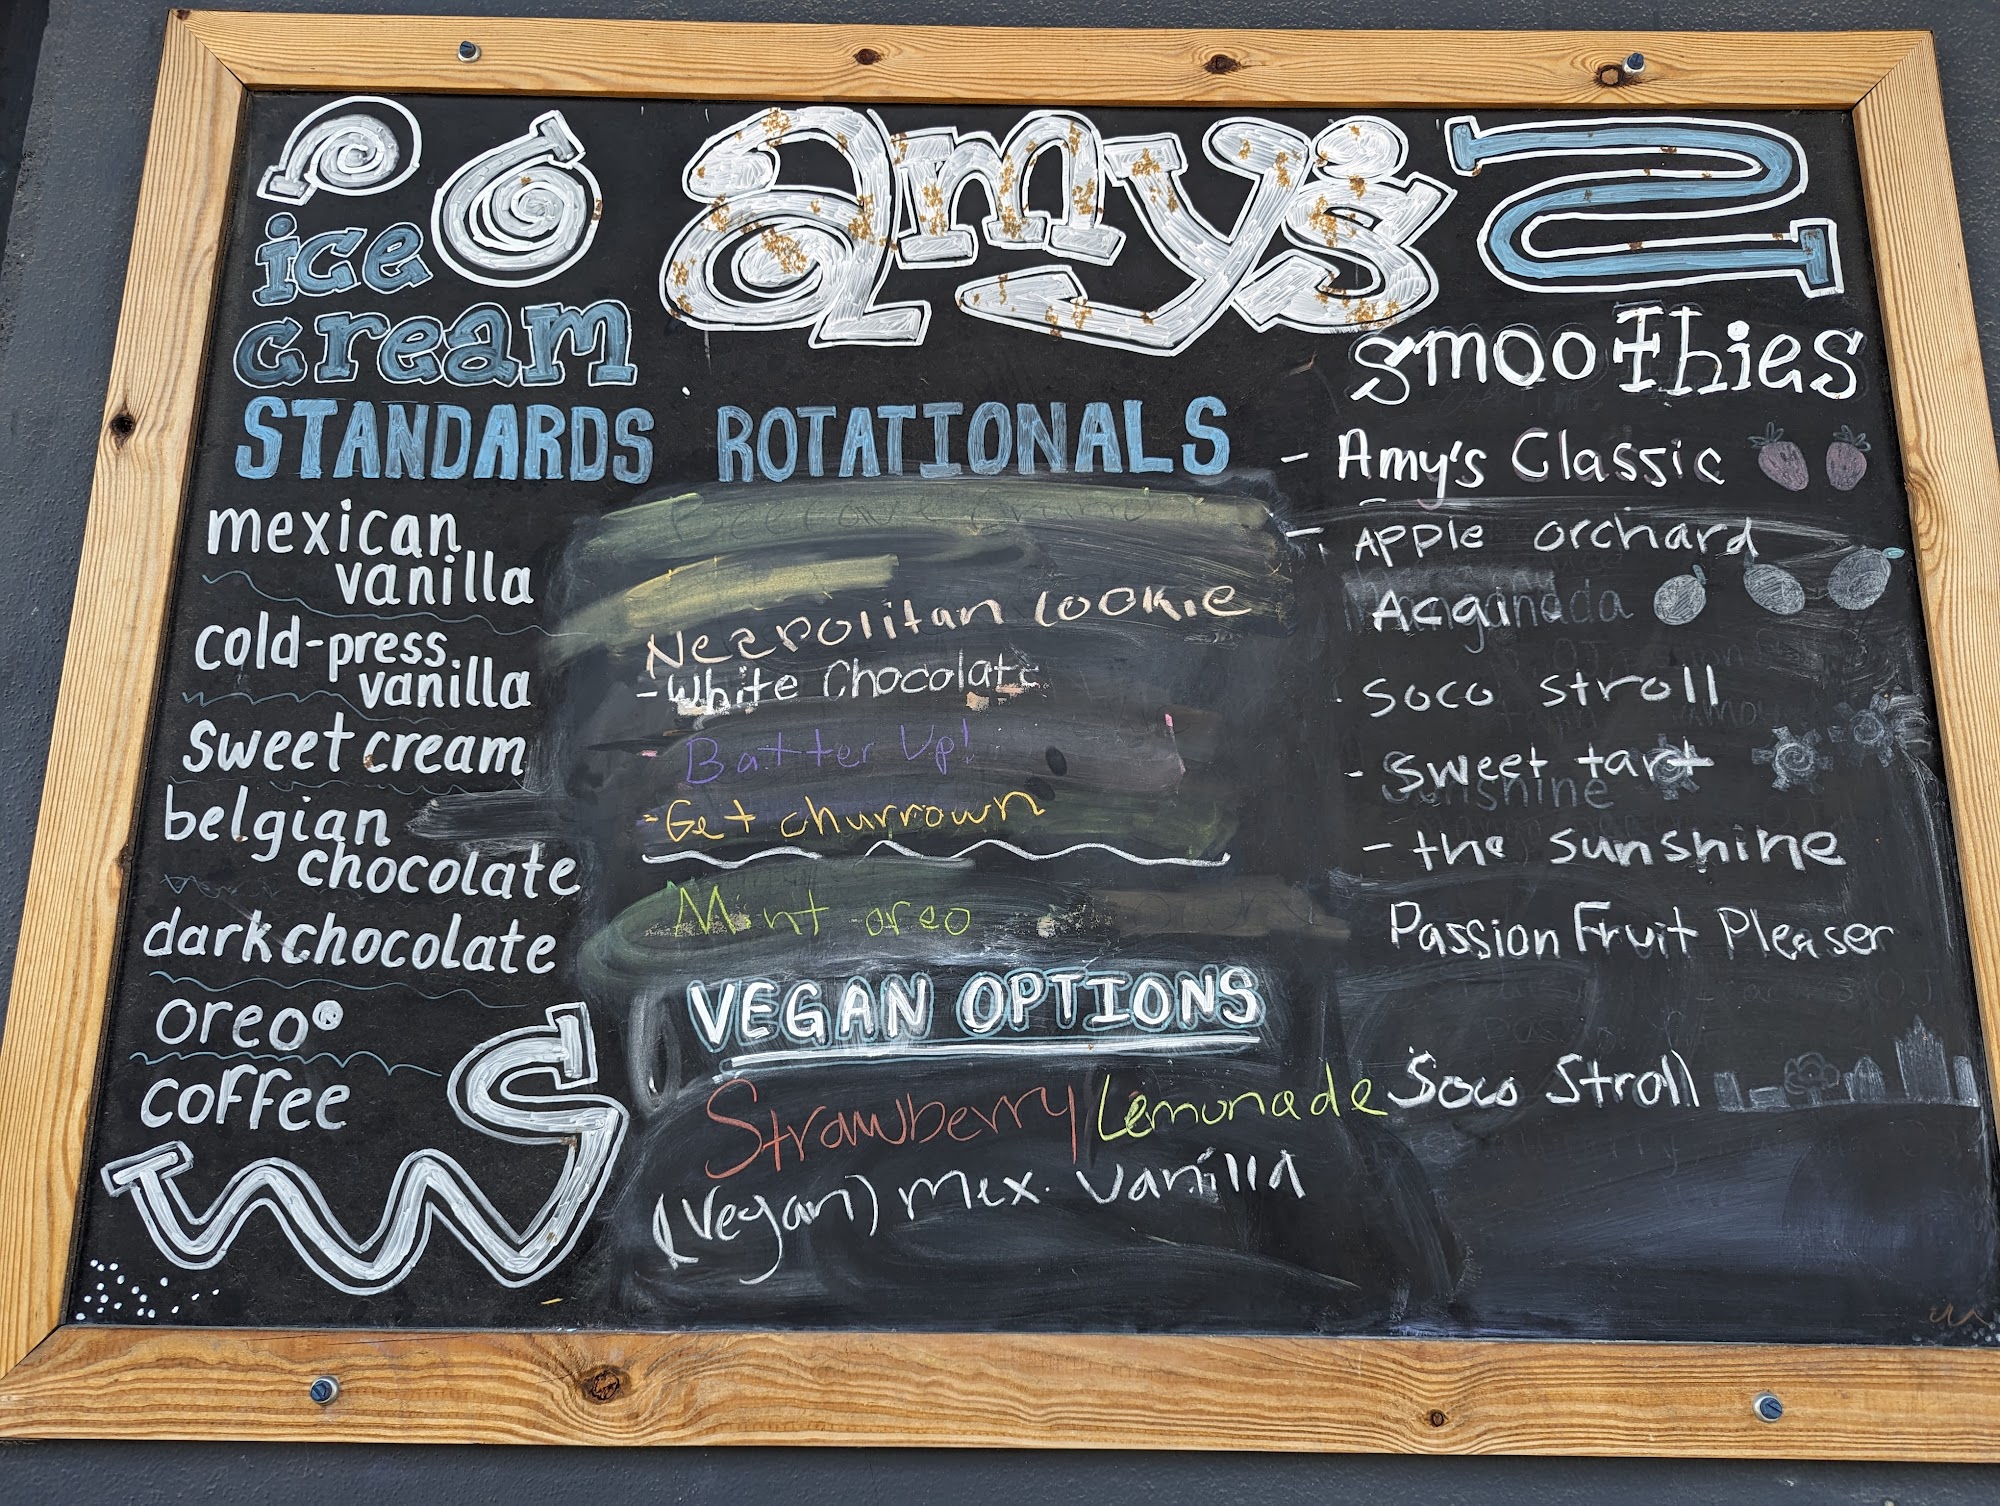 amy's
ice
cream
STANDARDS
mexican
vanilla
cold-press
vanilla
sweet cream
belgian
chocolate
dark chocolate
oreo®
coffee
ROTATIONALS
Neapolitan Cookie
- White Chocolate
- Batter Up!
- Get churrown
Mint oreo
VEGAN OPTIONS
Strawberry Lemonade
(Vegan) Mex. Vanilla
smoothies
- Amy's Classic
- Apple orchard
soco stroll
- sweet tart
sunshine
- the sunshine
Passion Fruit Pleaser
Soco Stroll